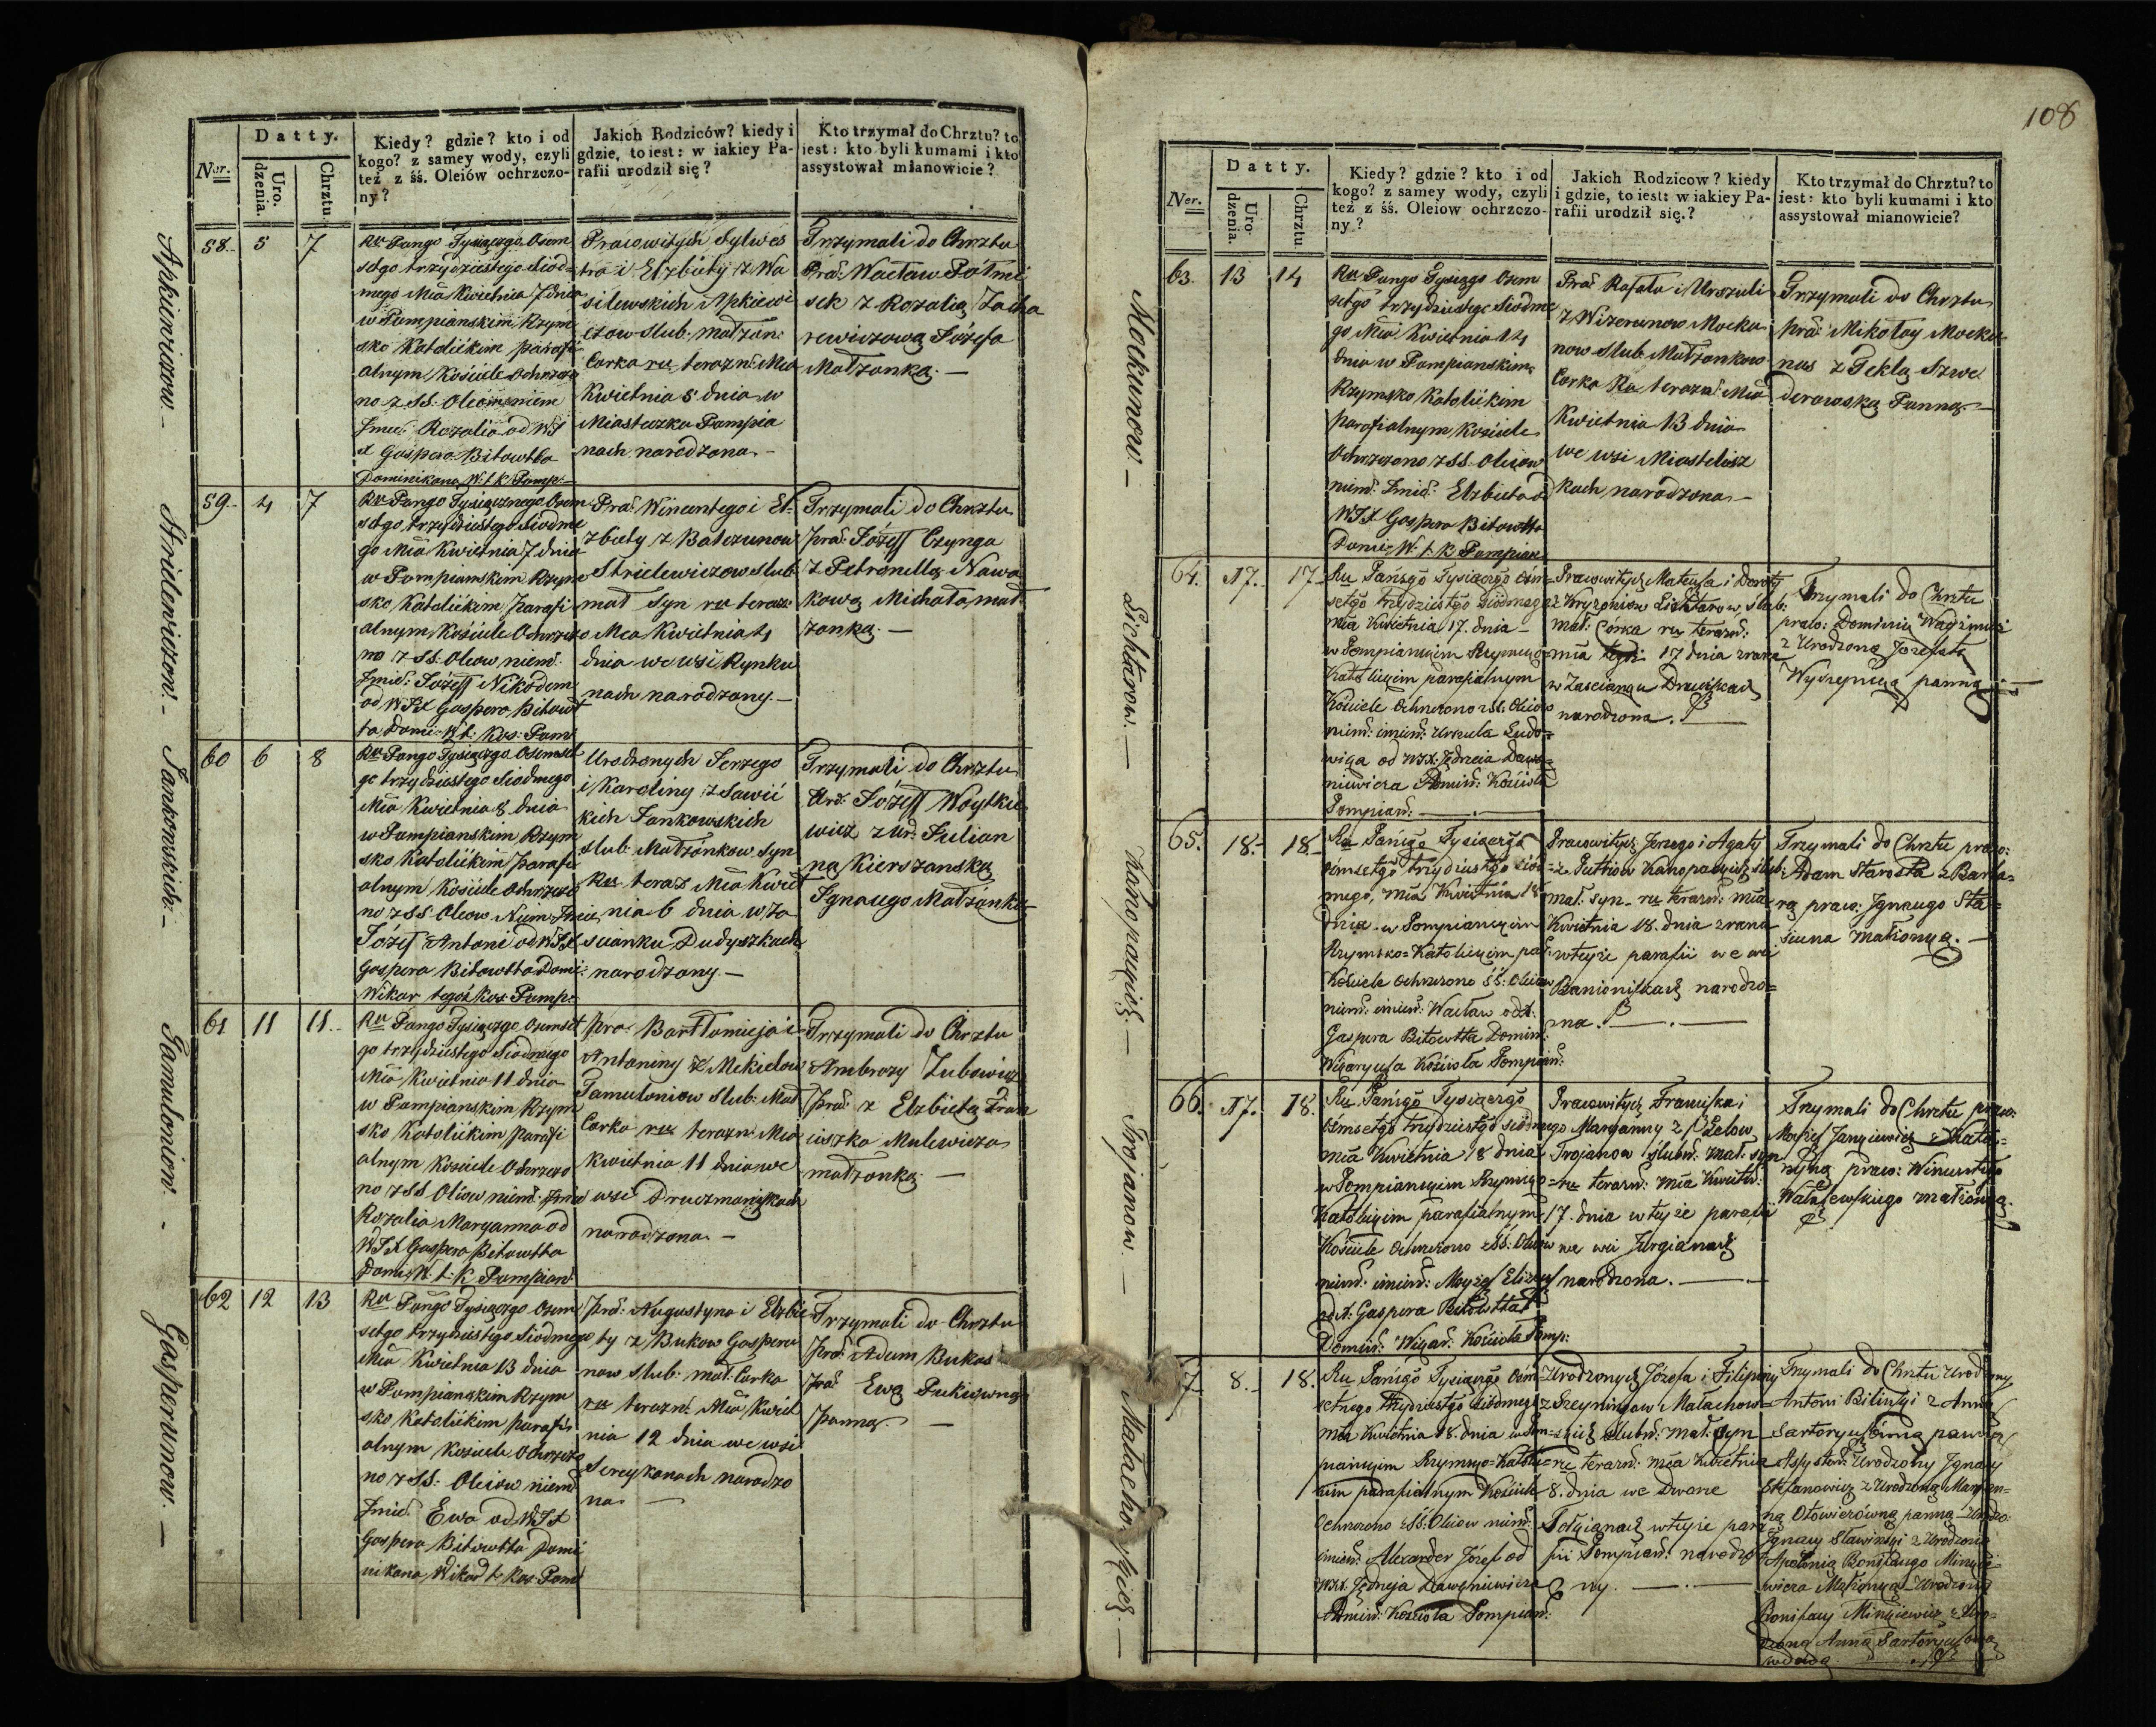 Ner.
Datty.
Uro.
dzenia.
Chrztu.
Kiedy? gdzie? kto i od
kogo? z samey wody, czyli
też z śś. Oleiów ochrzczo-
ny?
Jakich Rodziców? kiedy i
gdzie, to iest: w iakiey Pa-
rafii urodził się?
Kto trzymał do Chrztu? to
iest: kto byli kumami i kto
assystował mianowicie?
Apkiewiczow. -
58. 5 7
Ru Pango Tysiącżgo Osem
setgo trzydziestego siod-
mego Mca Kwietnia 7 dnia
w Pompianskim Rzym
sko Katolickim parafi
alnym Kosciele Ochrzczo
no z SS. Oleom niem
Imie Rozalia od WJ
X Gaspera Bitowtta
Dominikana W. t. K. Pomp.
Pracowitych Sylwes
tra i Elzbiety z Wa
silewskich Apkiewi
czow slub: małżon:
Corka ru terazn: Mca
Kwietnia 5 dnia w
Miasteczku Pompia
nach narodzona. -
Trzymali do Chrztu
Prac: Wacław
z Rozalią Zacha
rewiczową Józefa
Małżonką. -
Strielewiczow. -
59. 4 7
Ru Pango Tysiącznego Osem
setgo trzydziestego Siodme
go Mca Kwietnia 7 dnia
w Pompianskim Rzym
sko Katolickim Parafi
alnym Kosciele Ochrzczo
no z SS. Oleow niem:
Imie: Józeff Nikodem
od WJX Gaspera Bitowt
ta Domi: W t: Kos: Pom:
Prac: Wincentego i El-
zbiety z Balczunow
Strielewiczow slub:
mał Syn ru terazn
Mca Kwietnia 4
dnia we wsi Rynku
nach narodzony. -
Trzymali do Chrztu
prac: Józeff Czynga
z Petronellą Nawa
kową Michała mał
żonką. -
Jankowskich. -
60 6 8
Ru Pango Tysiącżgo Osemset
go trzydziestego Siodmego
Mca Kwietnia 8 dnia
w Pompianskim Rzym
sko Katolickim Parafi
alnym Kosciele Ochrzczo
no z SS Oleow Niem Imie
Józeff Antoni od WJX
Gaspera Bitowtta Domi:
Wikar tegoż Kos: Pomp:
Urodzonych Jerzego
i Karoliny z Sawic
kich Jankowskich
slub: Małżonkow syn
Ru teraz Mca Kwiet
nia 6 dnia w Za
scianku Dudyszkach
narodzony. -
Trzymali do Chrztu
Uro: Józeff Woytkie
wicz z Ur: Julian
ną Kierszanską
Ignacego Małżonką
Tamuloniow. -
61 11 11.
Ru Pango Tysiącżgo Osemset
go trzydziestego Siodmego
Mca Kwietnia 11 dnia
w Pompianskim Rzym
sko Katolickim Parafi
alnym Kosciele Ochrzczo
no z SS Oliow niem: Imie
Rozalia Maryanna od
WJX Gaspera Bitowtta
Domi: W. t: K Pompian:
prac: Bartłomieja i
Antoniny z Mikielow
Tamuloniow slub: Mał
Corka ru terazn: Mca
Kwietnia 11 dnia we
wsi Druczmaniszkach
narodzona. -
Trzymali do Chrztu
Ambrozy Zubowicz
Prac: z Elzbietą Fran
ciszka Mulewicza
małżonką. -
Gasperunow. -
62 12 13
Ru Pango Tysiącżgo Osem
setgo trzydziestego Siodmego
Mca Kwietnia 13 dnia
w Pompianskim Rzym
sko Katolickim Parafi
alnym Kosciele Ochrzczo
no z SS: Oleiow niem
Imie: Ewa od WJX
Gaspera Bitowtta Domi
nikana Wikar t. Kos: Pom
Prac: Augustyna i Elzbie
ty z Bukow Gasperu
now slub: mał: Corka
ru terazn: Mca Kwiet
nia 12 dnia we wsi
Sereykanach narodzo
na. -
Trzymali do Chrztu
Prac: Adam Bukas z
Prac: Ewą Pukiowną
Panną -
108
Ner.
Datty.
Uro-
dzenia.
Chrztu
Kiedy? gdzie? kto i od
kogo? z samey wody, czyli
też z śś. Oleiow ochrzczo-
ny?
Jakich Rodzicow? kiedy
i gdzie, to iest: w iakiey Pa-
rafii urodził się.?
Kto trzymał do Chrztu? to
iest: kto byli kumami i kto
assystował mianowicie?
Mockunow -
63. 13 14
Ru Pango Tysiącżgo Osem
setgo trzydziestgo Siodme
go Mca Kwietnia 14
dnia w Pompianskim
Rzymsko Katolickim
parafialnym Kosciele
Ochrzczono z SS. Oliow
niem: Imie: Elzbieta od
WJX Gaspera Bitowtta
Domi: W: t: K Pompian
Prac Rafała i Urszuli
z Wizerunow Mocku
now slub: Małżonkow
Corka Ru terazn: Mca
Kwietnia 13 dnia
we wsi Miasteliosz
kach narodzona. -
Trzymali do Chrztu
prac: Mikołay Mocku
nas z Teklą Szwe
derowską Panną. -
Lichtarow. -
64. 17. 17.
Ru Pańsgo Tysiącżgo Ośm=
setgo trzydziestgo siodmego
mca Kwietnia 17. dnia -
w Pompianskim Rzymsko=
Katolickim parafialnym
Kościele Ochrzczono z SS. Oleiow
niem: imien: Urszula Ludo=
wiga od WJX: Jędrzeia Dawa=
niewicza Admin: Kościoła
Pompian: -
Pracowitych Mateusza i Doroty
z Kryżoniow Lichtarow, ślub:
mał: Córka ru terazn:
mca tegoż 17 dnia zrana
w Zascianqu Drewiszkach
narodzona. -
Trzymali do Chrztu
praco: Dominik
z Urodzoną Jozefatą
panną. -
Kanopackich. -
65. 18. 18.
Ru Pańsgo Tysiącżgo
ośmsetgo trzydziestgo siod=
mego, mca Kwietnia 18
dnia w Pompianskim
Rzymsko=Katolickim par:
Kościele Ochrzczono SS: Oleiow
niem: imien: Wacław od X:
Gaspera Bitowtta Domin:
Wikaryusza Kościoła Pompian:
Pracowitych Jerzego i Agaty
z Putriow Kanopackich slub:
mał: syn ru terazn: mca
Kwietnia 18. dnia zrana
w tejże parafii we wsi
Ramoniszkach narodzo=
na. -
Trzymali do Chrztu praco:
Adam Starosta z Barba=
rą praco: Ignacego Sta=
siuna Małżonką. -
Trojanow. -
66. 17. 18.
Ru Pańsgo Tysiącżgo
ośmsetgo trzydziestgo siodmego
mca Kwietnia 18 dnia
w Pompianskim Rzymsko=
Katolickim parafialnym
Kościele Ochrzczono z SS: Oleiow
niem: imien: Moyżesz Elizeusz
od X: Gaspera Bitowtta
Domin: Wikar: Kościoła Pomp:
Pracowitych Franciszka i
Maryanny z
Trojanow ślubn: mał: syn
ru terazn: mca Kwietn:
17. dnia w tejże parafii
we wsi Jurgianach
narodzona. -
Trzymali do Chrztu praco:
Mojżesz Jankiewicz z Kata=
rzyną praco: Wincentego
małżonką.
Małachowskich. -
7. 8. 18.
Ru Pańsgo Tysiącżgo Ośm=
setnego trzydziestgo siodmego
mca Kwietnia 18. dnia w Pom=
pianskim Rzymsko=Katolic=
kim parafialnym Kościele
Ochrzczono z SS: Oleiow niem:
imien: Alexander Józef od
WJX. Jędrzeja Dawaniewicza
Admin: Kościoła Pompian:
Urodzonych Józefa i Filipiny
z Szeyningow Małachow=
skich ślubn: mał: Syn
ru terazn: mca Kwietnia
8. dnia we Dworze
w tejże para=
fii Pompian: narodzo
ny. -
Trzymali do Chrztu Urodzony
Antoni Biliński z Anną
Sartoryuszówną panną,
Assysten: Urodzony Ignacy
Stefanowicz z Urodzoną Maryan=
ną Ołowierówną panną Urodzo:
Ignacy Sławiński z Urodzoną
Apolonią Bonifacego Minkie=
wicza Małżonką Urodzony
Bonifacy Minkiewicz z Uro=
dzoną Anną Sartoryuszową
wdową